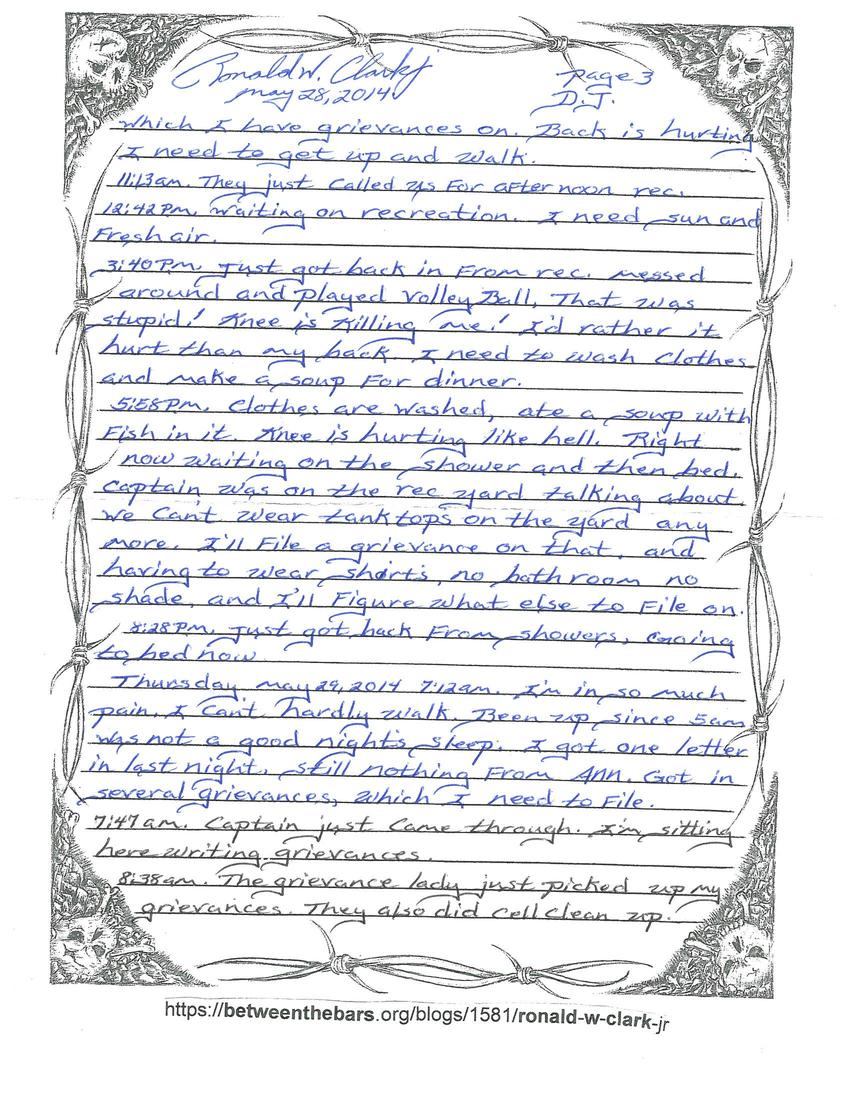 Ronald W. Clark Jr
May 28, 2014
Page 3
D.J.
which I have grievances on. Back is hurting
I need to get up and walk.
11:13am. They just called us For afternoon rec.
12:42PM. Waiting on recreation. I need sun and
Fresh air.
3:40PM. Just got back in From rec. messed
around and played volley Ball, That was
stupid! Knee is Killing me! I'd rather it
hurt than my back. I need to wash clothes
and make a soup For dinner.
5:58PM. Clothes are washed, ate a soup with
Fish in it. Knee is hurting like hell. Right
now waiting on the shower and then bed.
Captain was on the rec yard talking about
we can't wear tank tops on the yard any
more. I'll File a grievance on that, and
having to wear shirts, no bathroom no
shade, and I'll Figure what else to File on.
8:28PM. Just got back From showers, Going
to bed now.
Thursday may 29, 2014 7:12am. I'm in so much
pain. I can't hardly walk. Been up since 5am
was not a good night's sleep. I got one letter
in last night, still nothing From Ann. Got in
several grievances, which I need to File.
7:47am. Captain just came through. I'm sitting
here writing grievances.
8:38am. The grievance lady just picked up my
grievances. They also did cell clean up.
https://betweenthebars.org/blogs/1581/ronald-w-clark-jr